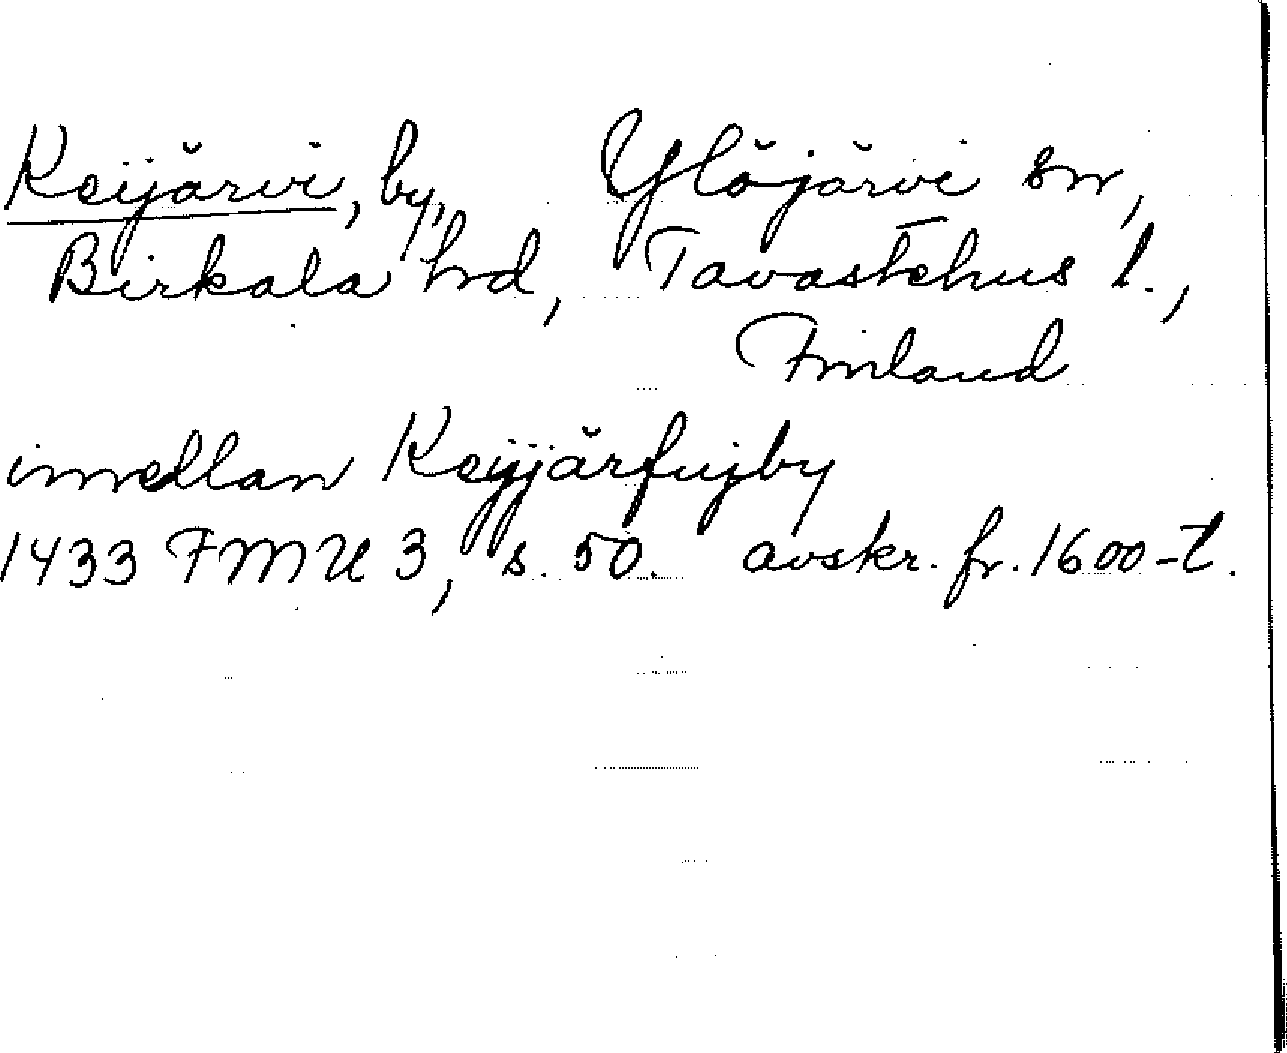 Keijärvi, by, Ylöjärvi sn,
Birkala hrd, Tavastehus l.,
Finland
imellan Keyjärfujby
1433 FMU 3, s. 50. avskr. fr. 1600-t.